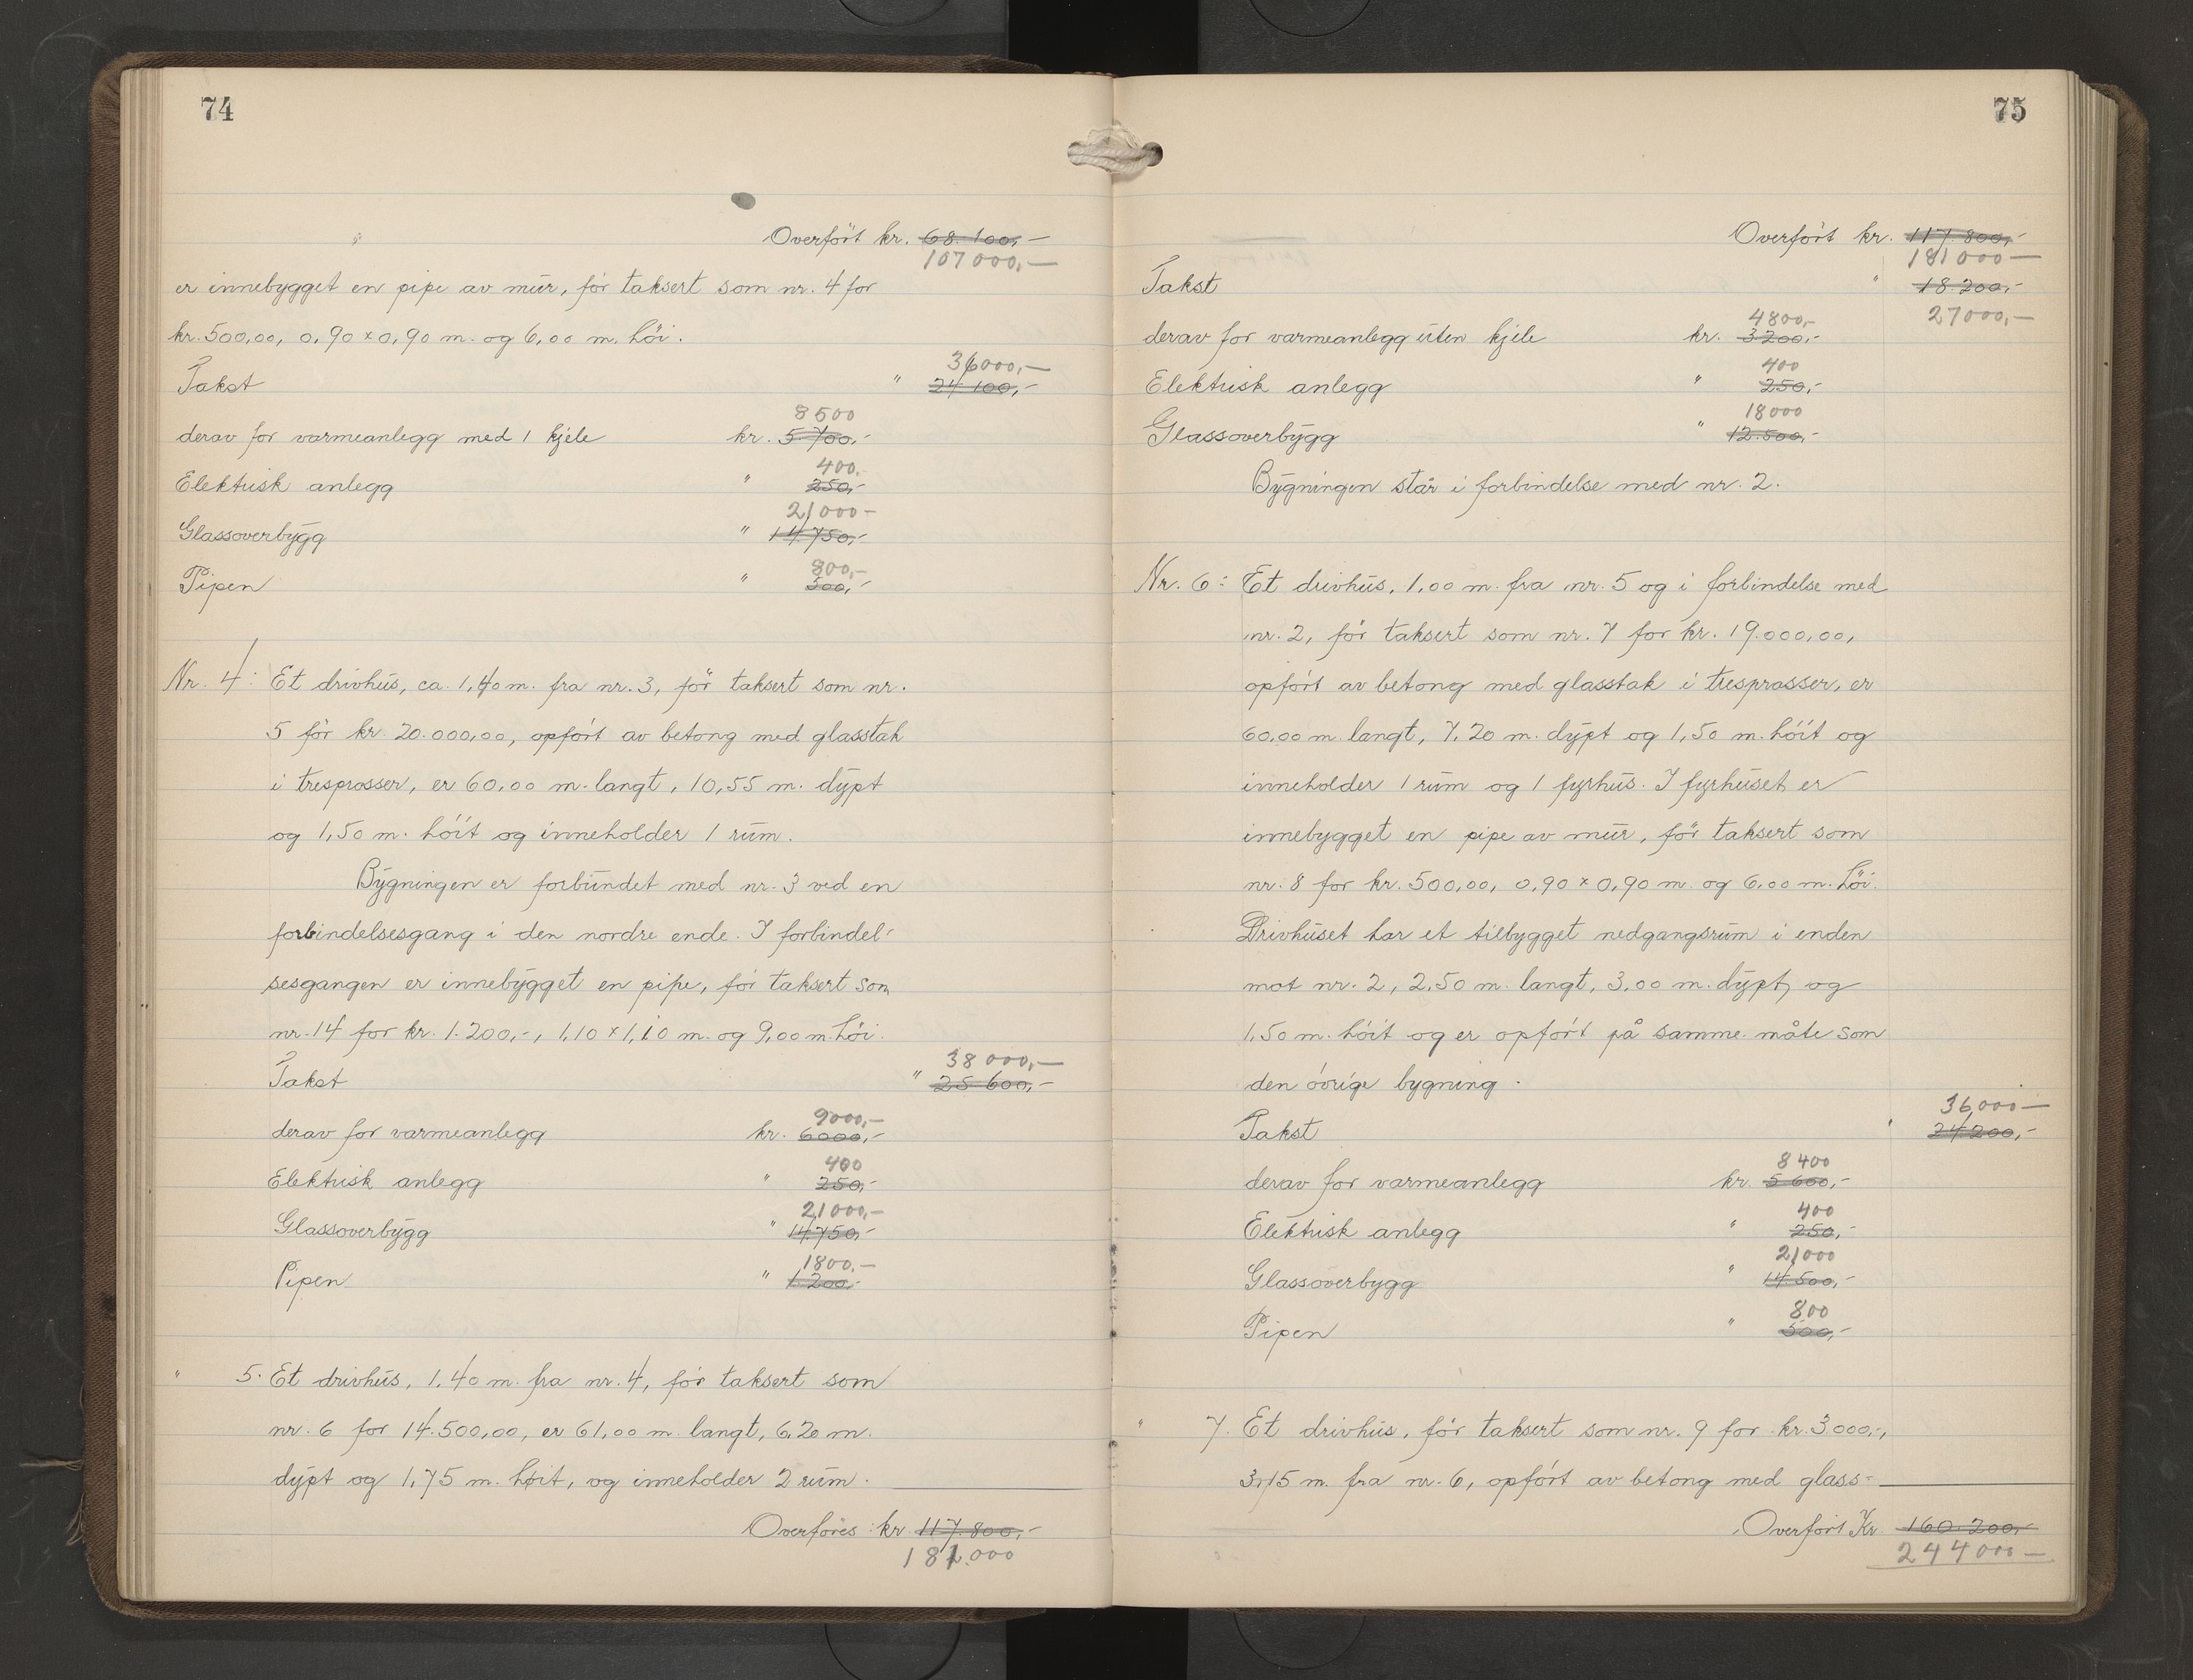 74
Overfört kr. 68.100,-
107000,-
er innebygget en pipe av mur, för taksert som nr. 4 for
kr. 500,00, 0,90 x 0,90 m. og 6,00 m. höi.
36000,-
Takst " 24.100,-
8500
derav for varmeanlegg med 1 kjele kr. 5.700,-
400,-
Elektrisk anlegg " 250,-
21000-
Glassoverbygg " 14.750,-
800,-
Pipen " 500,-
Nr. 4: Et drivhus, ca. 1,40 m. fra nr. 3, för taksert som nr.
5 för kr. 20.000,00, opfört av betong med glasstak
i tresprosser, er 60,00 m. langt, 10,55 m. dypt
og 1,50 m. höit og inneholder 1 rum.
Bygningen er forbundet med nr. 3 ved en
forbindelsesgang i den nordre ende. I forbindel-
sesgangen er innebygget en pipe, för taksert som
nr. 14 for kr. 1.200,-, 1,10 x 1,10 m. og 9,00 m. höi.
38000,-
Takst " 25.600,-
9000,-
derav for varmeanlegg kr. 6000,-
400
Elektrisk anlegg " 250,-
21000,-
Glassoverbygg " 14.750,-
1800,-
Pipen " 1.200,-
" 5. Et drivhus, 1.40 m. fra nr. 4, för taksert som
nr. 6 for 14.500,00, er 61,00 m. langt, 6,20 m.
dypt og 1,75 m. höit, og inneholder 2 rum.
Overföres: kr. 117.800,-
181.000
75
Overfört kr. 117.800,-
181000-
Takst " 18.200,-
27000,-
4800,-
derav for varmeanlegg uten kjele kr. 3200,-
400
Elektrisk anlegg " 250,-
18000
Glassoverbygg " 12.500,-
Bygningen står i forbindelse med nr. 2.
Nr. 6: Et drivhus, 1,00 m. fra nr. 5 og i forbindelse med
nr. 2, för taksert som nr. 7 for kr. 19.000,00,
opfört av betong med glasstak i tresprosser, er
60,00 m. langt, 7,20 m. dypt og 1,50 m. höit og
inneholder 1 rum og 1 fyrhus. I fyrhuset er
innebygget en pipe av mur, för taksert som
nr. 8 for kr. 500,00, 0,90 x 0,90 m. og 6,00 m. höi.
Drivhuset har et tilbygget nedgangsrum i enden
mot nr. 2, 2,50 m. langt, 3,00 m. dypt, og
1,50 m. höit og er opfört på samme måte som
den övrige bygning.
36000-
Takst " 24.200,-
8400
derav for varmeanlegg kr. 5600,-
400
Elektrisk anlegg " 250,-
21000
Glassoverbygg " 14.500,-
800
Pipen " 500,-
" 7. Et drivhus, för taksert som nr. 9 for kr. 3000,-,
3,15 m. fra nr. 6, opfört av betong med glass-
Overfört Kr. 160.200,-
244000-